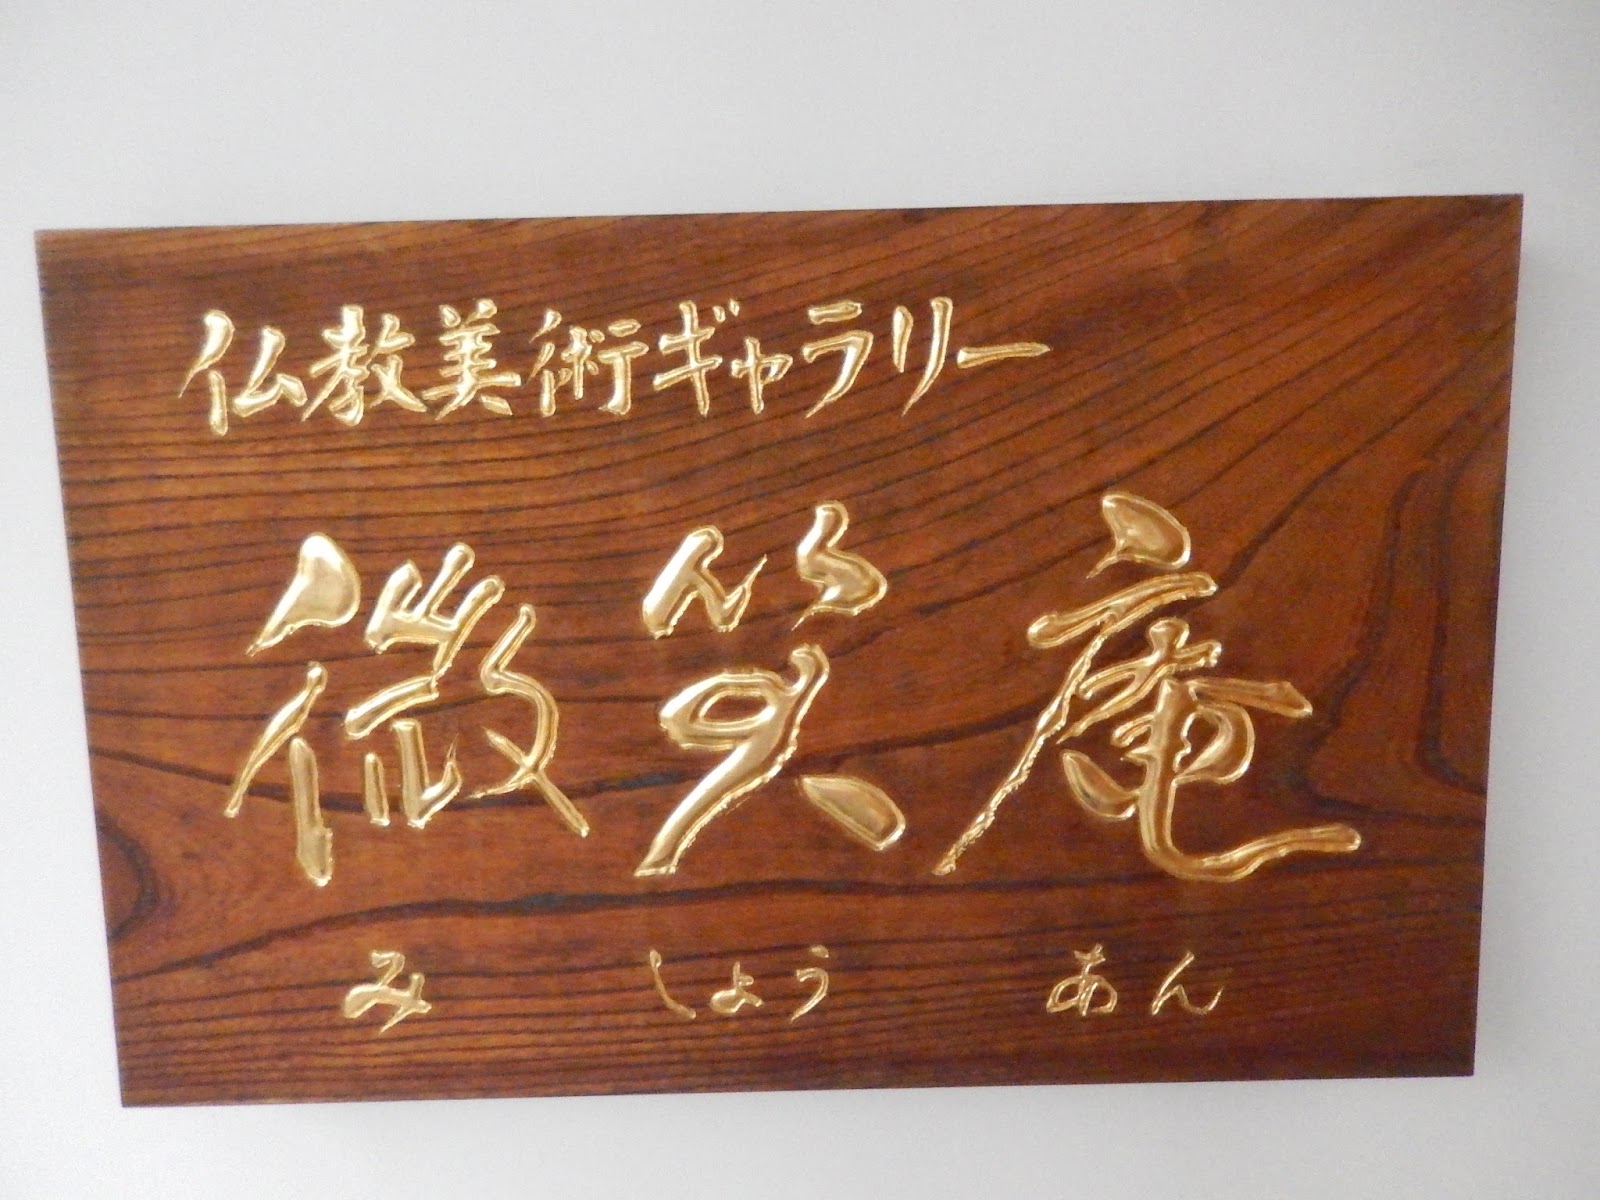 仏教美術ギャラリー
微笑庵
み しょう あん